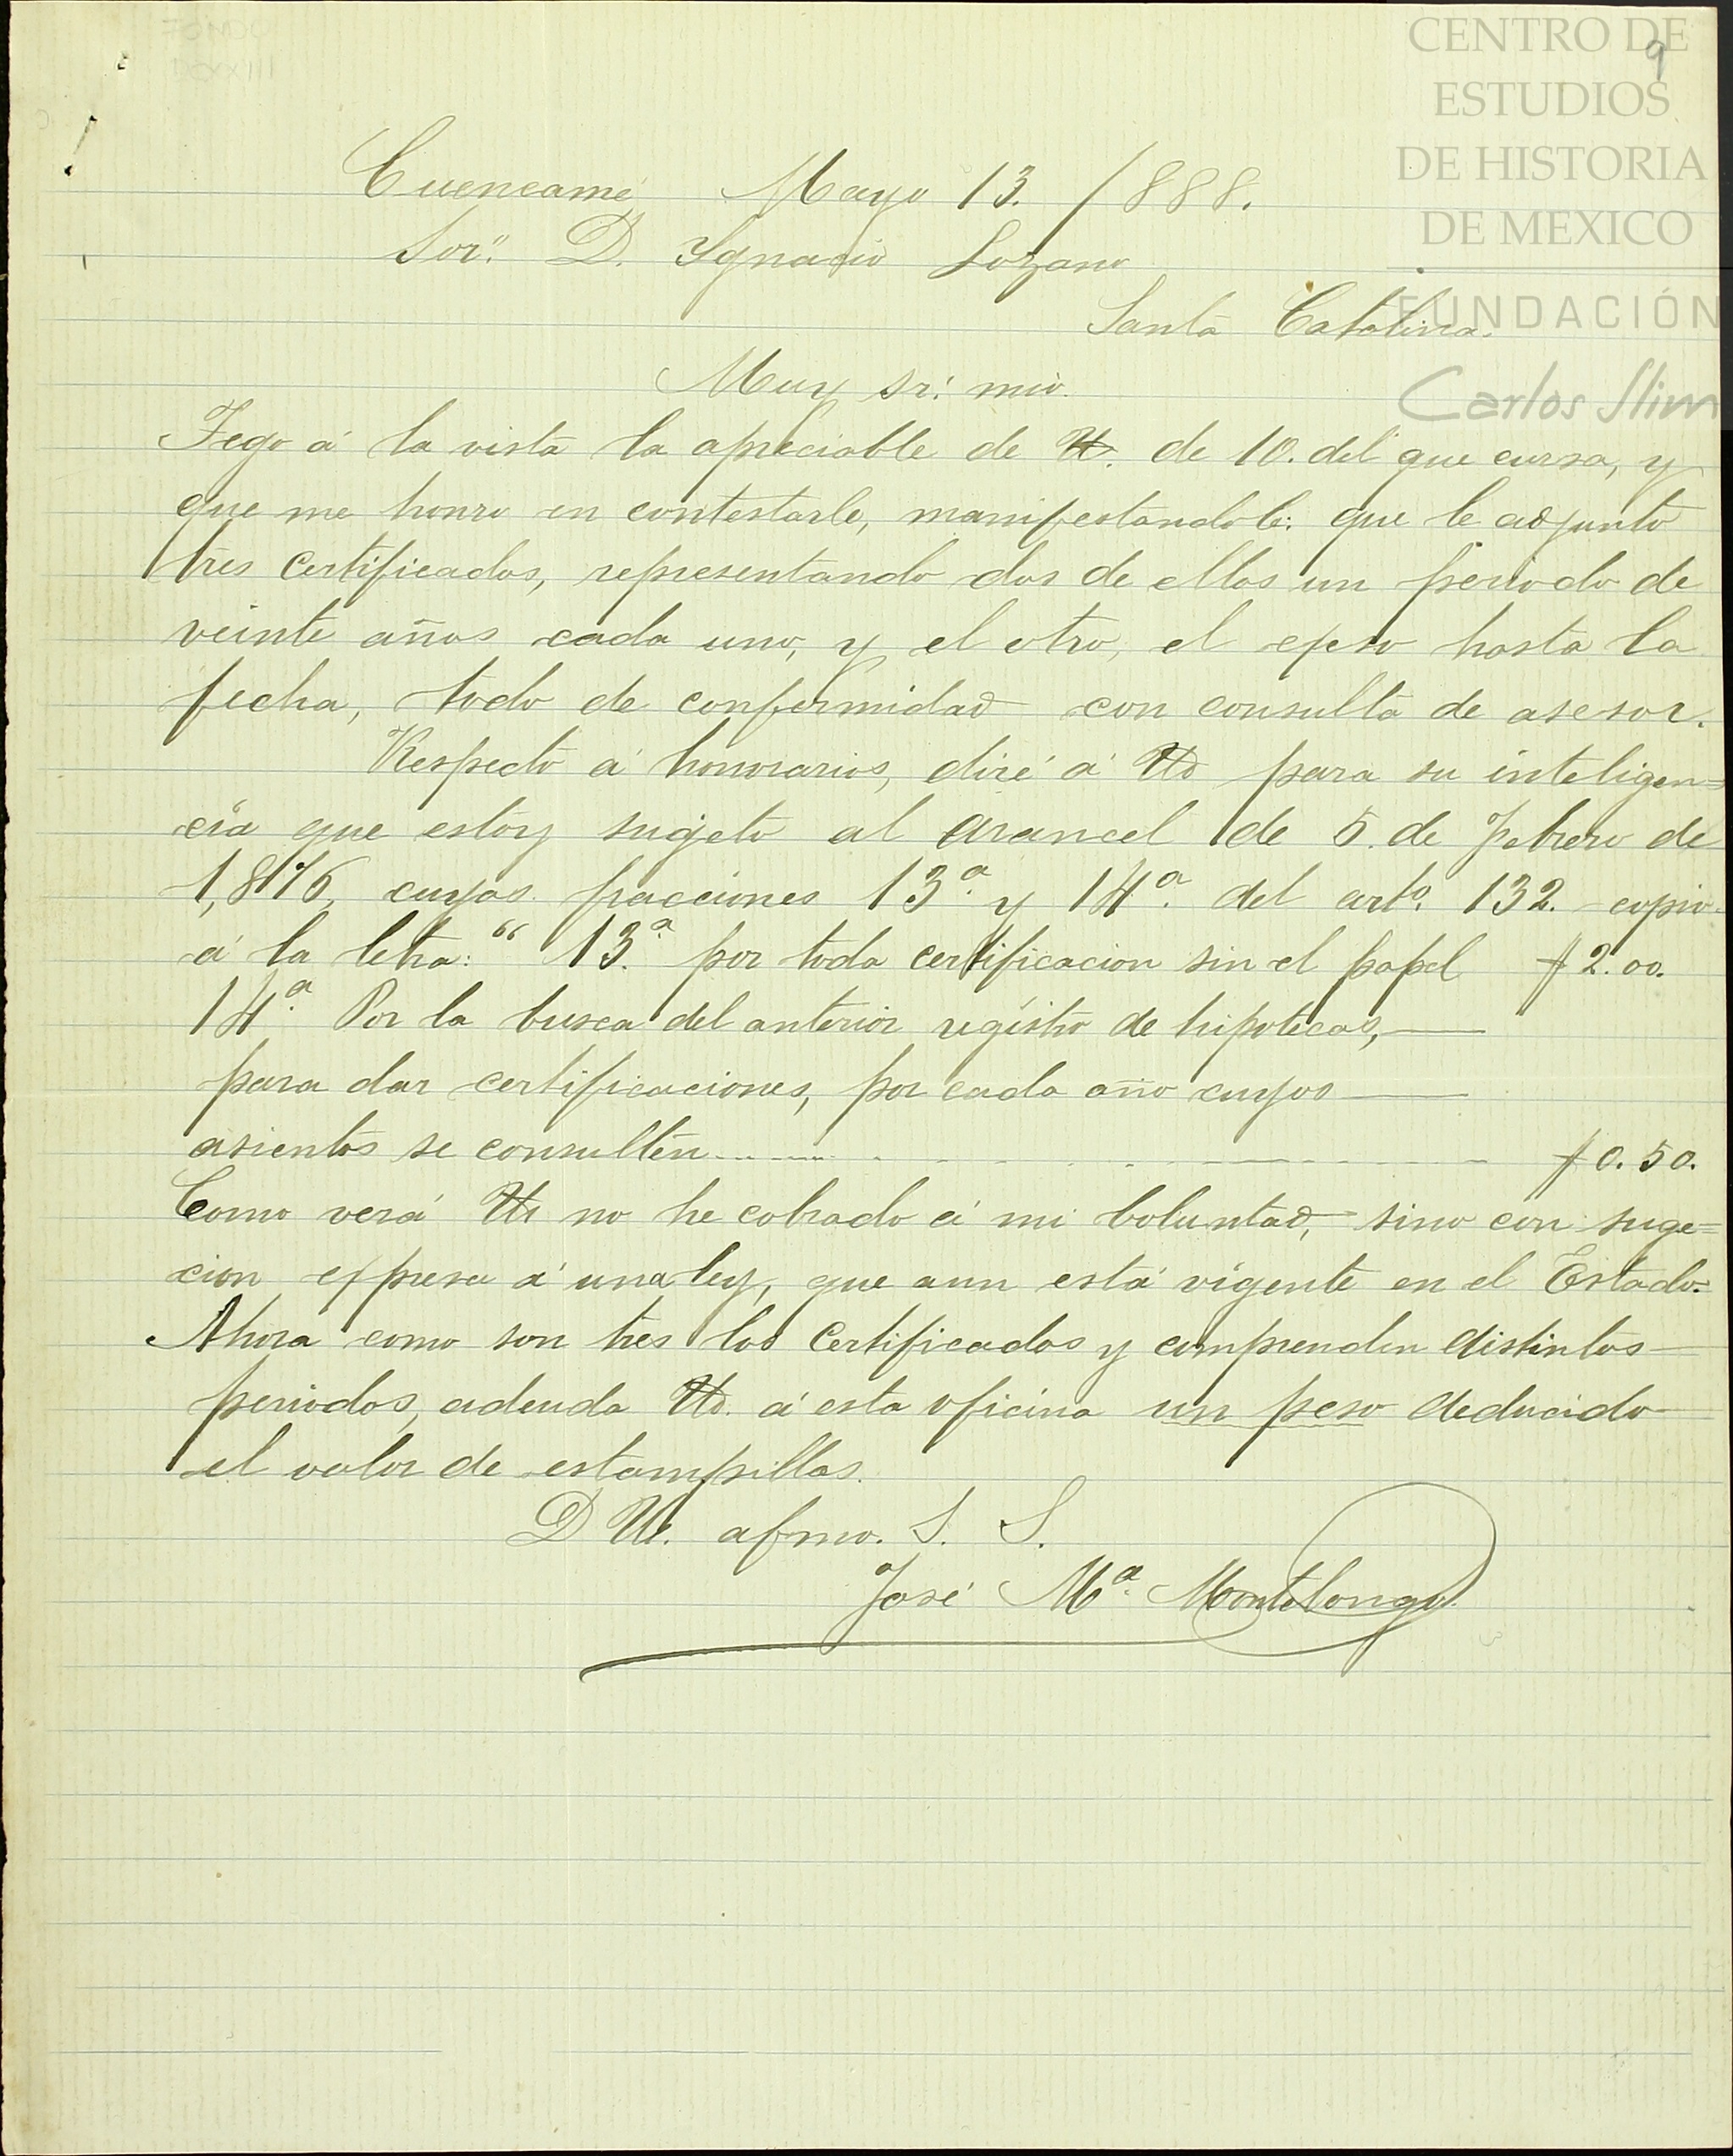 CENTRO DE
ESTUDIOS
DE HISTORIA
DE MEXICO
FUNDACIÓN
Carlos Slim
9
FONDO
DCXXIII
Cuencamé Mayo 13. /888.
Sor. D. Ygnacio Lozano
Santa Catalina.
Muy sr: mio.
Tego á la vista la apreciable de U. de 10. del que cursa, y
que me honro en contestarle, manifestandole: que le adjunto
tres Certificados, representando dos de ellos un periodo de
veinte años cada uno, y el otro, el exeso hasta la
fecha, todo de conformidad con consulta de asesor.
Respecto á honorarios, diré á Ud para su inteligen=
cia que estoy sugeto al arancel de 5. de Febrero de
1,876, cuyas fracciones 13.ª y 14ª. del arto. 132. copio
á la letra: “ 13.ª por toda certificacion sin el papel $ 2.00.
14ª. Por la busca del anterior registro de hipotecas,—
para dar certificaciones, por cada año cuyos —
asientos se consulten........ - - - - - $ 0.50.
Como verá Ud no he cobrado á mi boluntad, sino con suge=
cion expresa á una ley, que aun está vigente en el Estado.
Ahora como son tres los Certificados y comprenden distintos
periodos, adeuda Ud. á esta oficina un peso deducido
el valor de estampillas.
D U. afmo. S. S.
José Mª. Montelongo